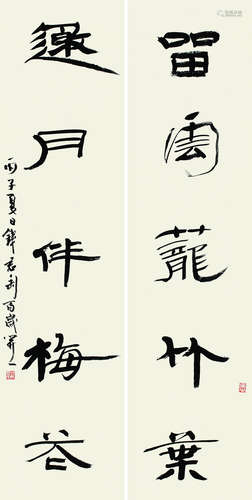 留雲蘢竹葉
邀月伴梅花
丙子夏日錢君匋百歲